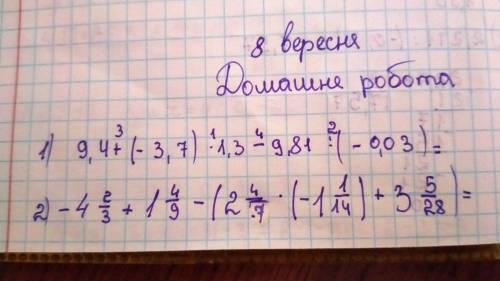 8 вересня
Домашня робота
1) 9,4 +³ (- 3,7) ·¹ 1,3 -⁴ 9,81 :² (- 0,03) =
2) - 4 2/3 + 1 4/9 - (2 4/7 · (-1 1/14) + 3 5/28) =